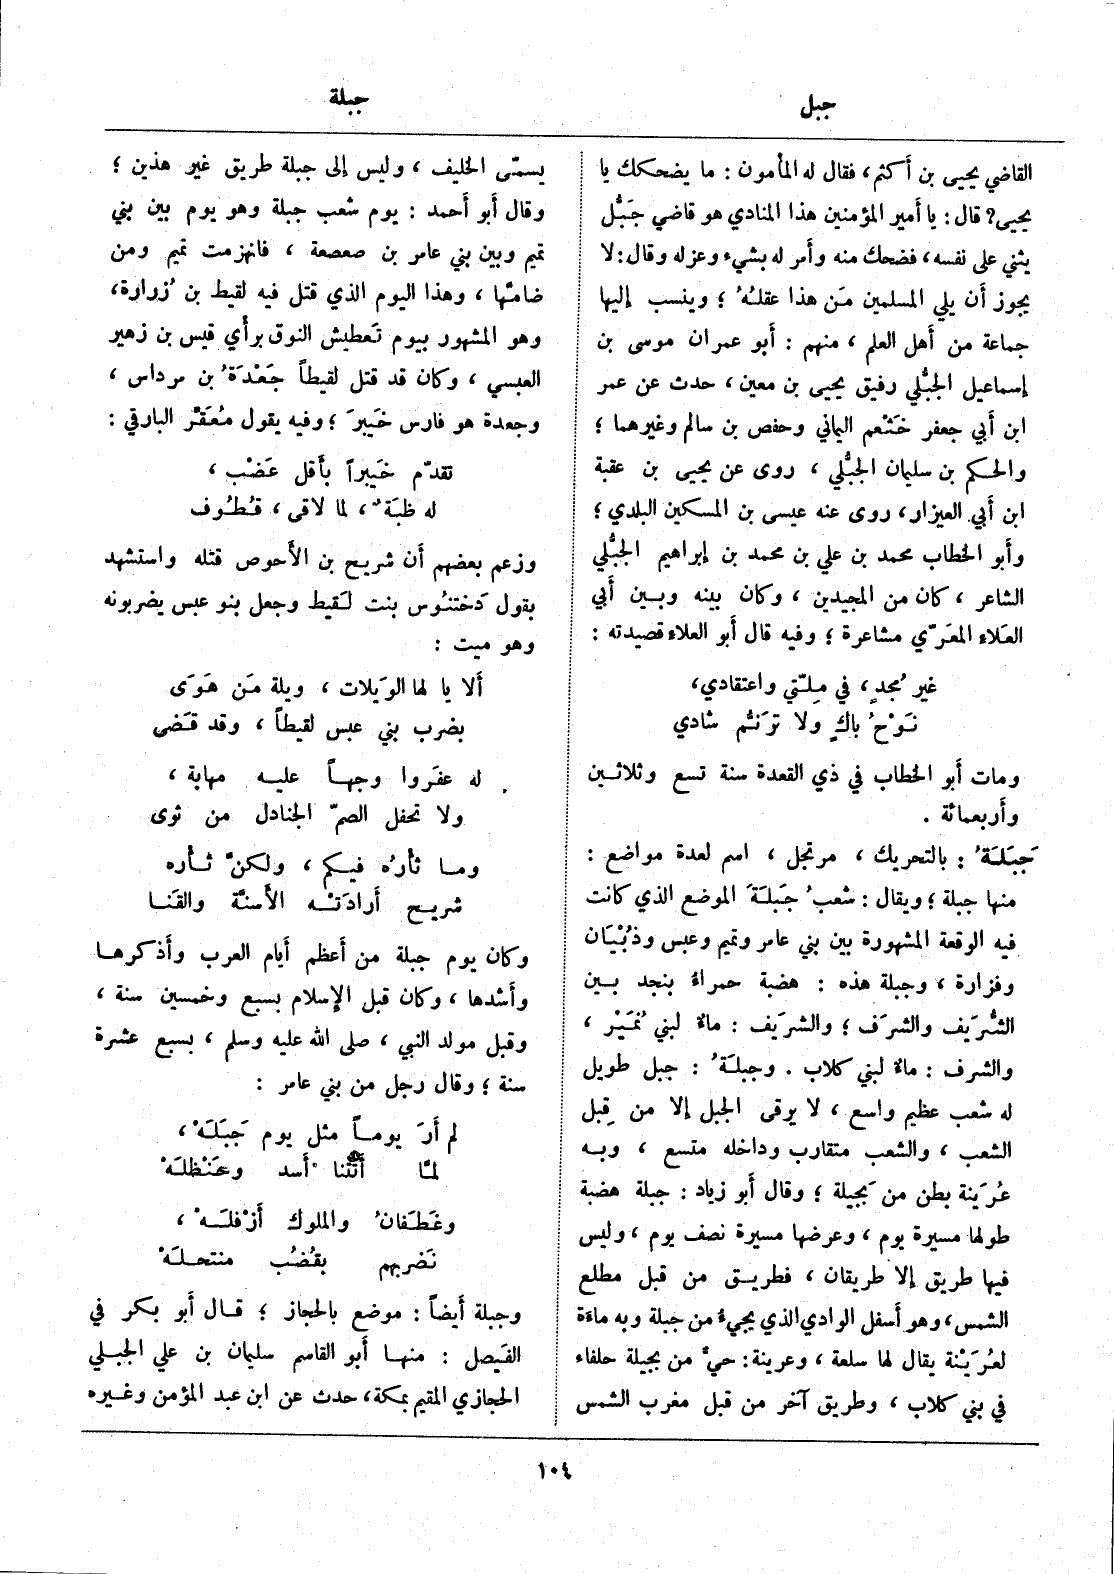 جبل
جبلة
القاضي يحيى بن أكثم، فقال له المأمون: ما يضحكك يا
يحيى؟ قال: يا أمير المؤمنين هذا المنادي هو قاضي جَبُّل
يثني على نفسه، فضحك منه وأمر له بشيء وعزله وقال: لا
يجوز أن يلي المسلمين مَن هذا عقلُهُ؛ وينسب إليها
جماعة من أهل العلم، منهم: أبو عمران موسى بن
إسماعيل الجَبُّلي رفيق يحيى بن معين، حدث عن عمر
ابن أبي جعفر خَثْعم اليماني وحفص بن سالم وغيرهما؛
والحكم بن سليمان الجَبُّلي، روى عن يحيى بن عقبة
ابن أبي العيزار، روى عنه عيسى بن المسكين البلدي؛
وأبو الخطاب محمد بن علي بن محمد بن إبراهيم الجَبُّلي
الشاعر، كان من المجيدين، وكان بينه وبين أبي
العلاء المعَرّي مشاعرة؛ وفيه قال أبو العلاء قصيدته:
غير مُجدٍ، في مِلّتي واعتقادي،
نَوْحُ باكٍ ولا تَرَنّم شادي
ومات أبو الخطاب في ذي القعدة سنة تسع وثلاثين
وأربعمائة.
جَبَلَةُ: بالتحريك، مرتجل، اسم لعدة مواضع:
منها جبلة؛ ويقال: شعبُ جَبَلَةَ الموضع الذي كانت
فيه الوقعة المشهورة بين بني عامر وتميم وعبس وذُبْيَان
وفزارة، وجبلة هذه: هضبة حمراءُ بنجد بين
الشُّرَيف والشرَف؛ والشرَيف: ماءٌ لبني نُمَيْر،
والشرف: ماءٌ لبني كلاب. وجبلَةُ: جبل طويل
له شعب عظيم واسع، لا يرقى الجبل إلا من قِبل
الشعب، والشعب متقارب وداخله متسع، وبه
عُرَينة بطن من بَجيلة؛ وقال أبو زياد: جبلة هضبة
طولها مسيرة يوم، وعرضها مسيرة نصف يوم، وليس
فيها طريق إلا طريقان، فطريق من قبل مطلع
الشمس، وهو أسفل الوادي الذي يجيءُ من جبلة وبه ماءة
لعُرَيْنة يقال لها سلعة، وعرينة: حيٌّ من بجيلة حلفاء
في بني كلاب، وطريق آخر من قبل مغرب الشمس
يسمّى الخليف، وليس إلى جبلة طريق غير هذين؛
وقال أبو أحمد: يوم شعب جبلة وهو يوم بين بني
تميم وبين بني عامر بن صعصعة، فانهزمت تميم ومن
ضامّها، وهذا اليوم الذي قتل فيه لقيط بن زُرارة،
وهو المشهور بيوم تَعطيش النوق برأي قيس بن زهير
العبسي، وكان قد قتل لقيطاً جَعْدَةُ بن مرداس،
وجعدة هو فارس خَيبَرَ؛ وفيه يقول مُعَقّر البارقي:
تقدّم خَيبراً بأقل عَضْب،
له ظبَةٌ، لما لاقى، قَطُوف
وزعم بعضهم أن شريح بن الأحوص قتله واستشهد
بقول دَختَنُوس بنت لَقيط وجعل بنو عبس يضربونه
وهو ميت:
ألا يا لها الويَلات، ويلة مَن هَوَى
بضرب بني عبس لقيطاً، وقد قَضى
له عفَروا وجهاً عليه مهابة،
ولا تحفل الصمّ الجنادل من ثوى
وما ثأرُه فيكم، ولكنّ ثأره
شريح أرادَتْه الأسنةُ والقَنا
وكان يوم جبلة من أعظم أيام العرب وأذكرها
وأشدها، وكان قبل الإسلام بسبع وخمسين سنة،
وقبل مولد النبي، صلى الله عليه وسلم، بسبع عشرة
سنة؛ وقال رجل من بني عامر:
لم أرَ يوماً مثل يوم جَبَلَهْ،
لمّا أتَتْنا أسد وحَنْظلَهْ
وغَطَفانُ والملوك أزْفلَهْ،
نَضربهم بقُضُب منتحلَهْ
وجبلة أيضاً: موضع بالحجاز؛ قال أبو بكر في
الفَيصل: منها أبو القاسم سليمان بن علي الجبلي
الحجازي المقيم بمكة، حدث عن ابن عبد المؤمن وغيره
١٠٤